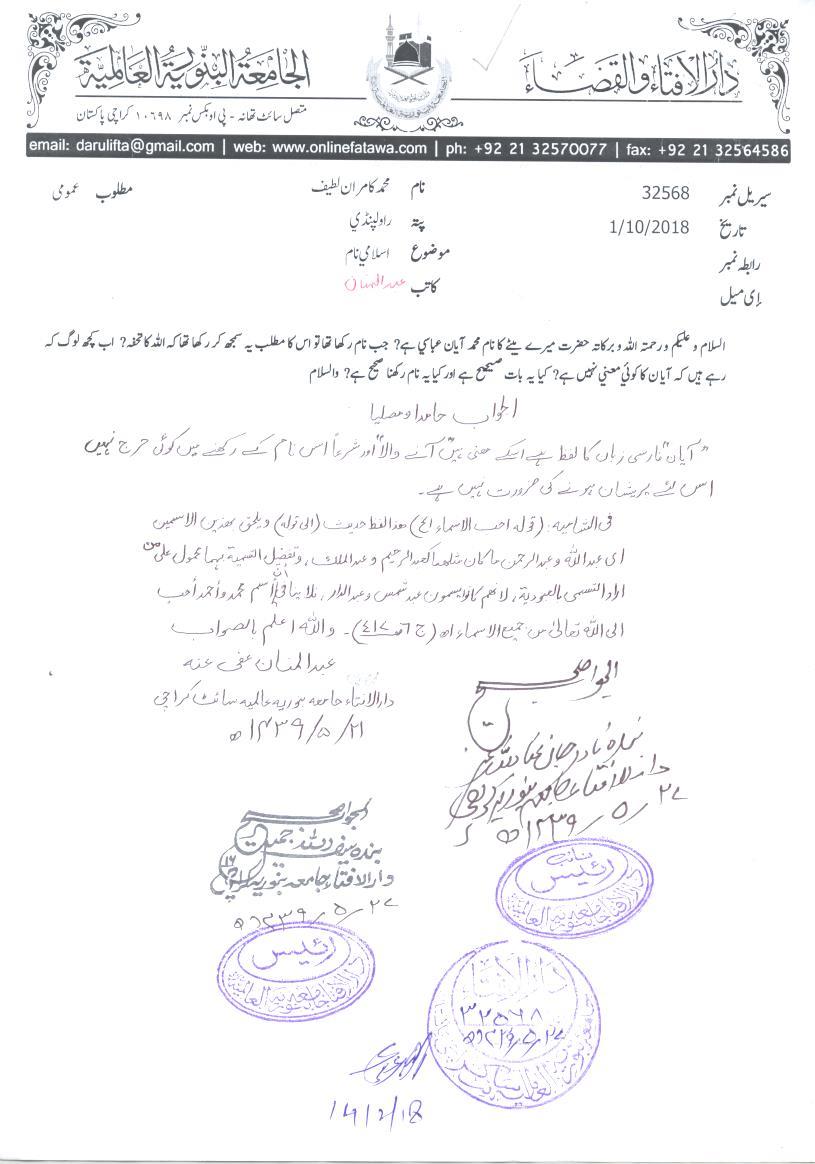 دارالافتاء والقضاء
الجامعة البنورية العالمية
متصل سائٹ تھانہ - پی او بکس نمبر ۱۰۶۹۸ کراچی پاکستان
email: darulifta@gmail.com | web: www.onlinefatawa.com | ph: +92 21 32570077 | fax: +92 21 32564586
سیریل نمبر 32568 نام محمد کامران لطیف مطلوب عمومی
تاریخ 1/10/2018 پتہ راولپنڈي
رابطہ نمبر موضوع اسلامي نام
إی میل کاتب عبدالمنان
السلام و علیکم ورحمتہ اللہ و برکاتہ حضرت میرے بیٹے کا نام محمد آیان عباسي ہے? جب نام رکھا تھا تو اس کا مطلب یہ سمجھ کر رکھا تھا کہ اللہ کا تحفہ? اب کچھ لوگ کہ
رہے ہیں کہ آیان کا کوئي معني نہیں ہے? کیا یہ بات صیحیح ہے اور کیا یہ نام رکھنا صحیح ہے? والسلام
الجواب حامدا ومصلیا
"آیان" فارسی زبان کا لفظ ہے اسکے معنی ہیں "آنے والا" اور شرعاً اس نام کے رکھنے میں کوئی حرج نہیں
اس لئے پریشان ہونے کی ضرورت نہیں ہے۔
فی الشامیہ: (قولہ احب الاسماء الخ) ھذا لفظ حدیث (الی قولہ) ویلحق بھذین الاسمین
ای عبداللہ وعبدالرحمن ما کان مثلھما کعبدالرحیم وعبدالملک، وتفضیل التسمیة بہما محمول علی من
اراد التسمی بالعبودیة، لانھم کانوا یسمون عبد شمس وعبدالدار، فلا ینافی أن اسم محمد وأحمد أحب
الی اللہ تعالیٰ من جمیع الاسماء اھ (ج ٦ ص ٤١٧)۔ واللہ اعلم بالصواب
عبدالمنان عفی عنہ
دارالافتاء جامعہ بنوریہ عالمیہ سائٹ کراچی
۲۱/۵/۱۴۳۹ھ
الجواب صحیح
دارالافتاء جامعہ بنوریہ کراچی
۲۷/۵/۱۴۳۹ھ
نائب
رئیس
الجواب صحیح
دارالافتاء جامعہ بنوریہ کراچی
۲۷/۵/۱۴۳۹ھ
رئیس
دارالافتاء
۳۲۵۶۸
۲۷/۵/۱۴۳۹ھ